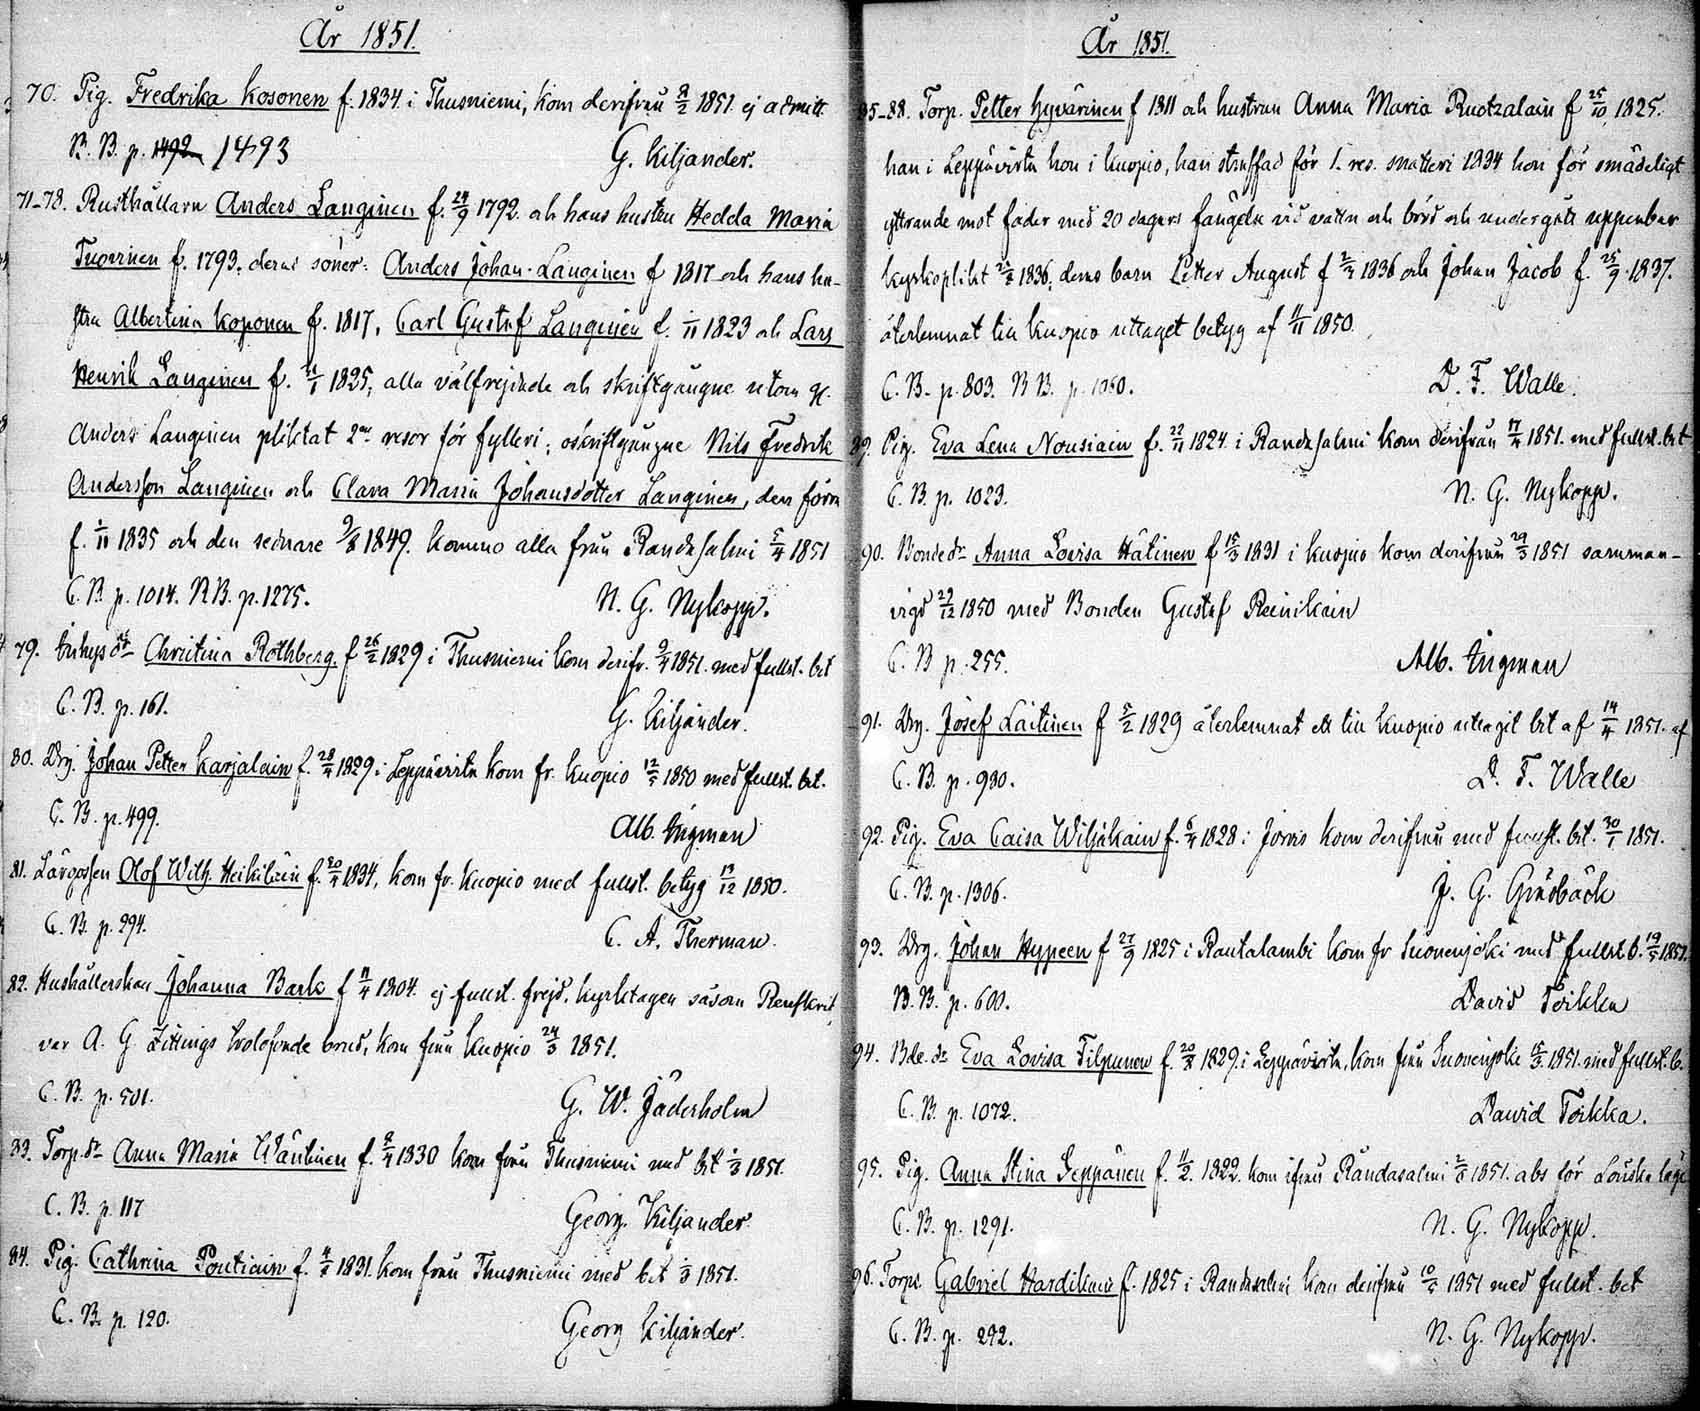 År 1851.
70. Pig. Fredrika Kosonen f. 1834 i Thusniemi, kom derifrån 8/2 1851. ej admitt.
B. B. p. 1492 1493 G. Kiljander.
71-78. Rusthållarn Anders Langinen f. 24/9 1792. och hans hustru Hedda Maria
Tuovinen f. 1793. deras söner: Anders Johan Langinen f 1817 och hans hu-
stru Albertina Koponen f. 1817, Carl Gustaf Langinen f. /11 1823 och Lars
Henrik Langinen f. 1825, alla välfrejdade och skriftgångne utom
Anders Langinen pliktat 2ne resor för fylleri; oskriftgångne Nils Fredrik
Andersson Langinen och Clara Maria Johansdotter Langinen, den förra
f. 1/11 1835 och den sednare 9/8 1849. kommo alla från Randasalmi 5/4 1851
C. B. p. 1014. B. p. 1275. N. G. Nykopp.
79. Inhys dr Christina Rothberg f 26/2 1829 i Thusniemi kom derifr. 9/4 1851. med fullst. bet
C. B. p. 161. G. Kiljander.
80. Drg. Johan Petter Karjalain f. 28/4 1829 i Leppävirta kom fr. Kuopio 12/5 1850 med fullst. bet.
C. B. p. 499. Alb. Ingman
81. Lärgossen Olof Wilh. Heikiläin f. 20/4 1834, kom fr. Kuopio med fullst. betyg 17/12 1850.
C. B. p. 294. C. A. Therman.
82. Hushållerskan Johanna Bark f 11/4 1804. ej fullst. frejd. Kyrktagen såsom Renskrif
var A. G. Zittings trolofvade brud, kom från Kuopio 24/3 1851.
C. B. p. 501. G. W. Jäderholm
83. Torp. dr Anna Maria Wäntinen f. 2/4 1830 kom från Thusniemi med bet 1/3 1851.
C. B. p. 117 Georg. Kiljander
84. Pig. Cathrina Poutiain f. 1831. kom från Thusniemi med bet 1/3 1851.
C. B. p. 120. Georg Kiljander.
År 1851.
85-88. Torp. Petter Hyvärinen f 1811 och hustrun Anna Maria Ruotzalain f 25/10 1825.
han i Leppävirta hon i Kuopio, han straffad för 1. res. snatteri 1834 hon för smädeligt
yttrande mot fader med 20 dagars fängelse vid vatten och bröd och undergått uppenbar
kyrkoplikt 1836, deras barn Petter August f 2/7 1836 och Johan Jacob f. 25/9 1837.
återlemnat till Kuopio uttaget betyg af 6/11 1850.
C. B. p. 803. B. B. p. 1050. D. F. Walle.
89. Pig. Eva Lena Nousiain f. 22/11 1824 i Randasalmi kom derifrån 17/4 1851. med fullst. bet
C. B. p. 1023. N. G. Nykopp.
90. Bonde dr Anna Lovisa Hätinen f 15/3 1831 i Kuopio kom derifrån 29/3 1851 samman-
vigd 29/12 1850 med Bonden Gustaf Reinikain
C. B p. 255. Alb. Ingman
91. Drg. Josef Laitinen f 5/2 1829 återlemnat ett till Kuopio uttagit bet af 14/4 1851. af
C. B. p. 930. D. F. Walle
92. Pig. Eva Caisa Wiljakain f. 6/4 1828 i Jorois kom derifrån med fullst. bet. 30/1 1851.
C. B. p. 1306. J. G. Gråsbäck
93. Drg. Johan Hyppeen f 27/9 1825 i Rautalambi kom fr Suonenjoki med fullst b. 19/5 1851.
B. B. p. 600. David Toikka
94. Bde. dr Eva Lovisa Filpunen f. 20/8 1829. i Leppävirta, kom från Suonenjoki 15/3 1851. med fullst. b.
C. B. p. 1072. Dawid Toikka.
95. Pig. Anna Stina Seppänen f. 11/2 1822. kom ifrån Randasalmi 1851. abs för Lönska läge
C. B. p. 1291. N. G. Nykopp.
96. Torpe Gabriel Hardikain f. 1825 i Randasalmi kom derifrån 10/5 1851 med fullst. bet
C. B. p. 292. N. G. Nykopp.